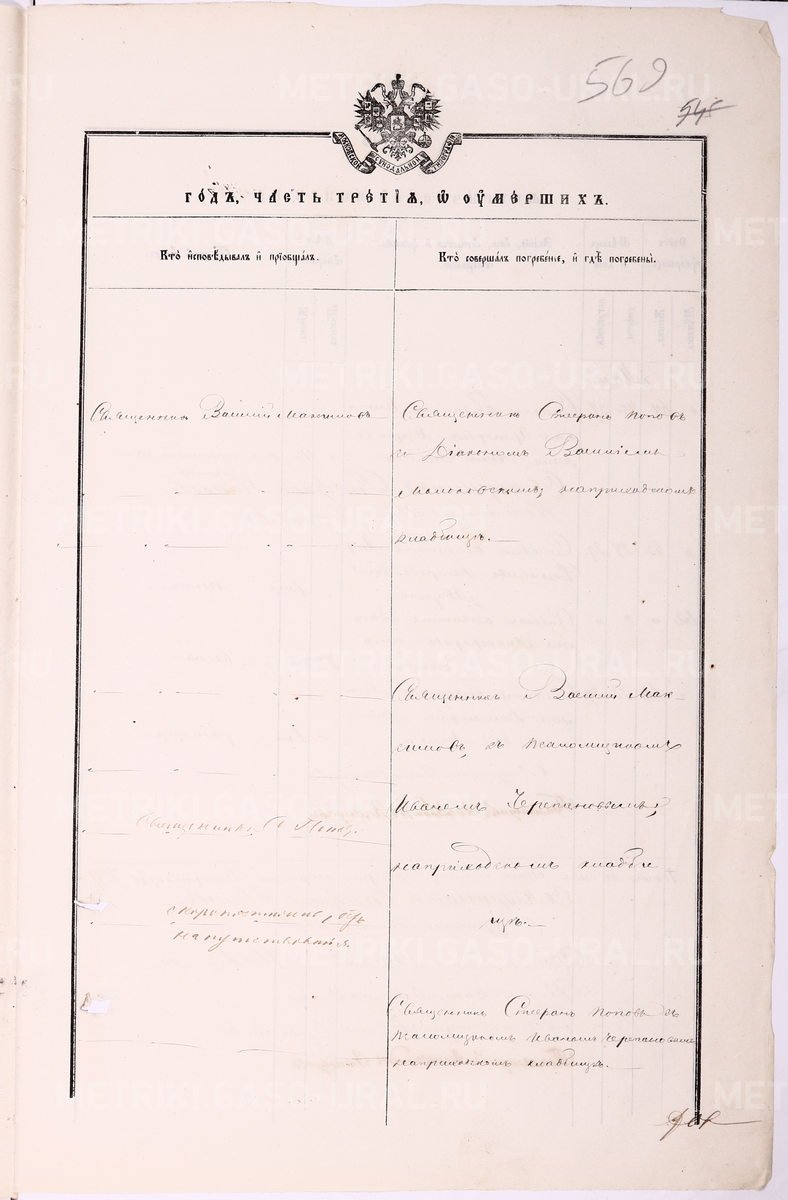 569
МОСКОВСКОЙ СѴНОДАЛЬНОЙ ТИПОГРАФІИ
ГОДЪ, ЧАСТЬ ТРЕТІѦ, Ѡ ОУМЕРШИХЪ.
Кто исповѣдывалъ и пріобщалъ.
Кто совершалъ погребеніе, и гдѣ погребены.
Священникъ Василій Максимовъ
Священникъ Стефанъ Поповъ
съ Діакономъ Василіемъ
на приходскомъ
кладбищѣ.
Священникъ Василій Мак-
симовъ, съ Псаломщикомъ
Иваномъ Черепановымъ;
на приходскомъ кладби
щѣ.
Священникъ С Поповъ.
скоропостижно, безъ
напутствованія.
Священникъ Стефанъ Поповъ съ
Псаломщикомъ Иваномъ Черепановымъ
на приходскомъ кладбищѣ.
METRIKI.GASO-URAL.RU